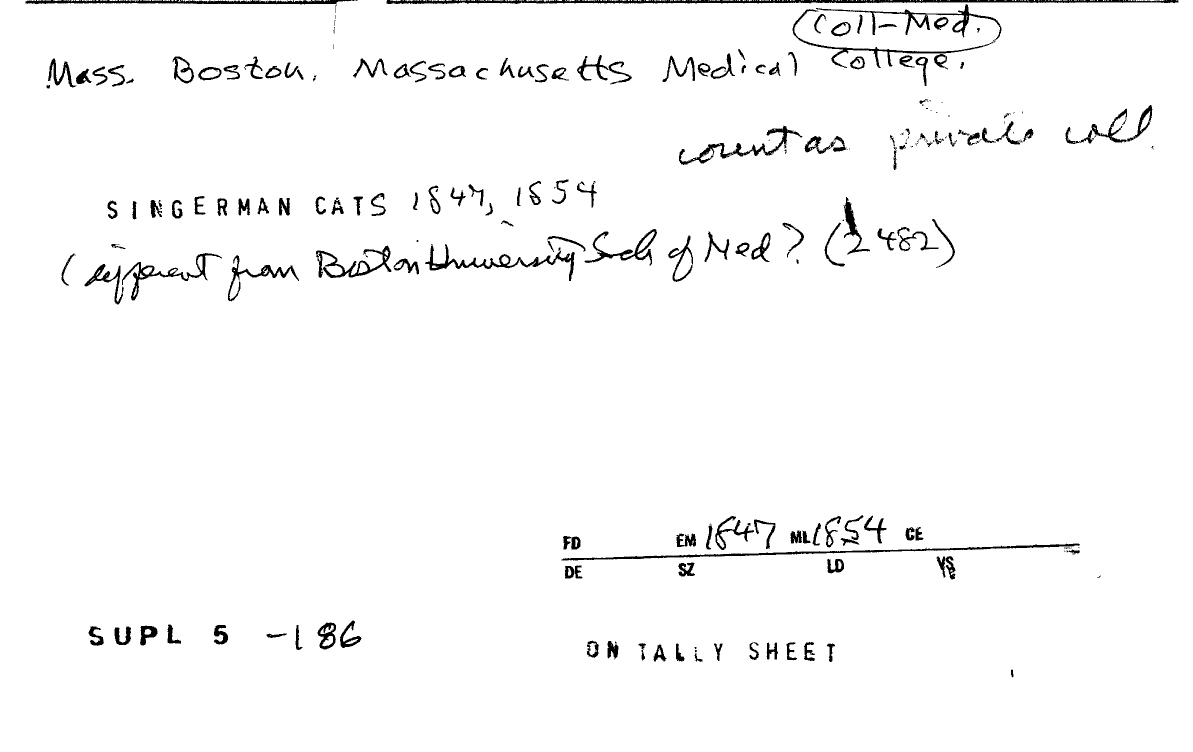 Coll-Med.
Mass. Boston. Massachusetts Medical College.
count as private coll.
SINGERMAN CATS 1847, 1854
(different from Boston University Sch of Med? (2482)
FD EM 1847 ML 1854 CE
DE SZ LD VS
SUPL 5 -186
ON TALLY SHEET